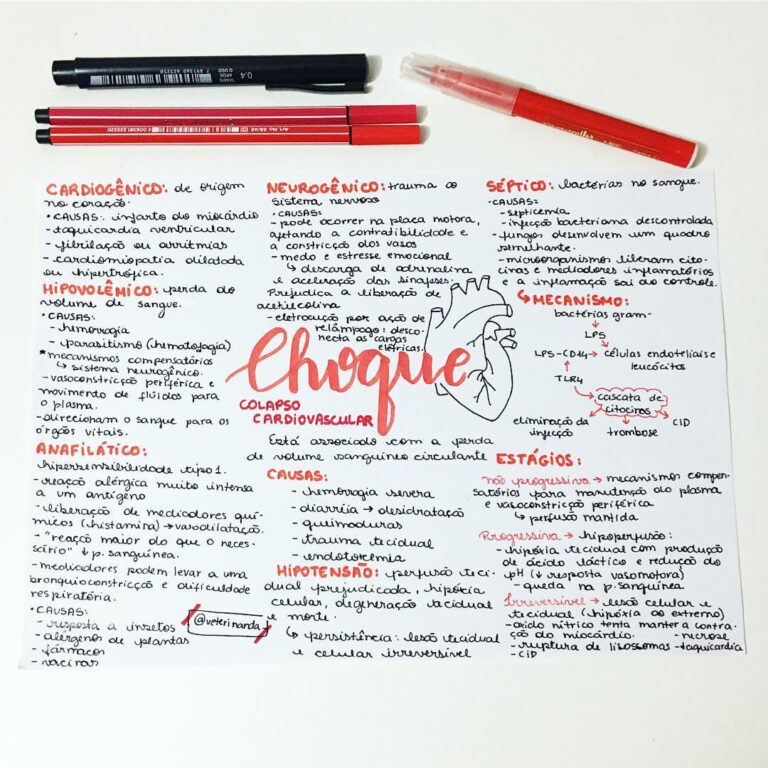 0.4
CARDIOGÊNICO: de origem
no coração.
• CAUSAS: infarto do miocárdio
- taquicardia ventricular
- fibrilação ou arritmias
- cardiomiopatia dilatada
ou hipertrófica.
HIPOVOLÊMICO: perda do
volume de sangue.
• CAUSAS:
- hemorragia
- parasitismo (hematofagia)
* mecanismos compensatórios
↳ sistema neurogênico.
- vasoconstricção periférica e
movimento de fluidos para
o plasma.
- direcionam o sangue para os
órgãos vitais.
ANAFILÁTICO:
hipersensibilidade tipo 1.
- reação alérgica muito intensa
a um antígeno
- liberação de mediadores quí-
micos (histamina) → vasodilatação.
- "reação maior do que o neces-
sário" ↓ p. sanguínea.
- mediadores podem levar a uma
bronquioconstricção e dificuldade
respiratória.
• CAUSAS:
- resposta a insetos
- alérgenos de plantas
- fármacos
- vacinas
@veterinanda
NEUROGÊNICO: trauma ao
sistema nervoso
• CAUSAS:
- pode ocorrer na placa motora,
afetando a contratibilidade e
a constricção dos vasos
- medo e estresse emocional
↳ descarga de adrenalina
e aceleração das sinapses.
Prejudica a liberação de
acetilcolina
- eletrocução por ação de
relâmpago: desco-
necta as cargas
elétricas.
Choque
COLAPSO
CARDIOVASCULAR
Está associado com a perda
de volume sanguíneo circulante
CAUSAS:
- hemorragia severa
- diarréia → desidratação
- queimaduras
- trauma tecidual
- endotoxemia
HIPOTENSÃO: perfusão teci-
dual prejudicada, hipóxia
celular, degeneração tecidual
e morte.
↳ persistência: lesão tecidual
e celular irreversível
SÉPTICO: bactérias no sangue.
• CAUSAS:
- septicemia
- infecção bacteriana descontrolada
- fungos desenvolvem um quadro
semelhante.
- microorganismos liberam cito-
cinas e mediadores inflamatórios
e a inflamação sai do controle.
↳ MECANISMO:
bactérias gram-
LPS
LPS-CD14 → células endoteliais e
leucócitos
TLR4
cascata de
citocinas
eliminação da
infecção
trombose
CID
ESTÁGIOS:
não progressiva → mecanismos compen-
satórios para manutenção do plasma
e vasoconstricção periférica
↳ perfusão mantida
Progressiva → hipoperfusão:
- hipóxia tecidual com produção
de ácido láctico e redução do
pH (↓ resposta vasomotora)
- queda na p. sanguínea
Irreversível → lesão celular e
tecidual (hipóxia ao extremo)
- óxido nítrico tenta manter a contra-
ção do miocárdio.
- necrose
- ruptura de lisossomas
- taquicardia
- CID